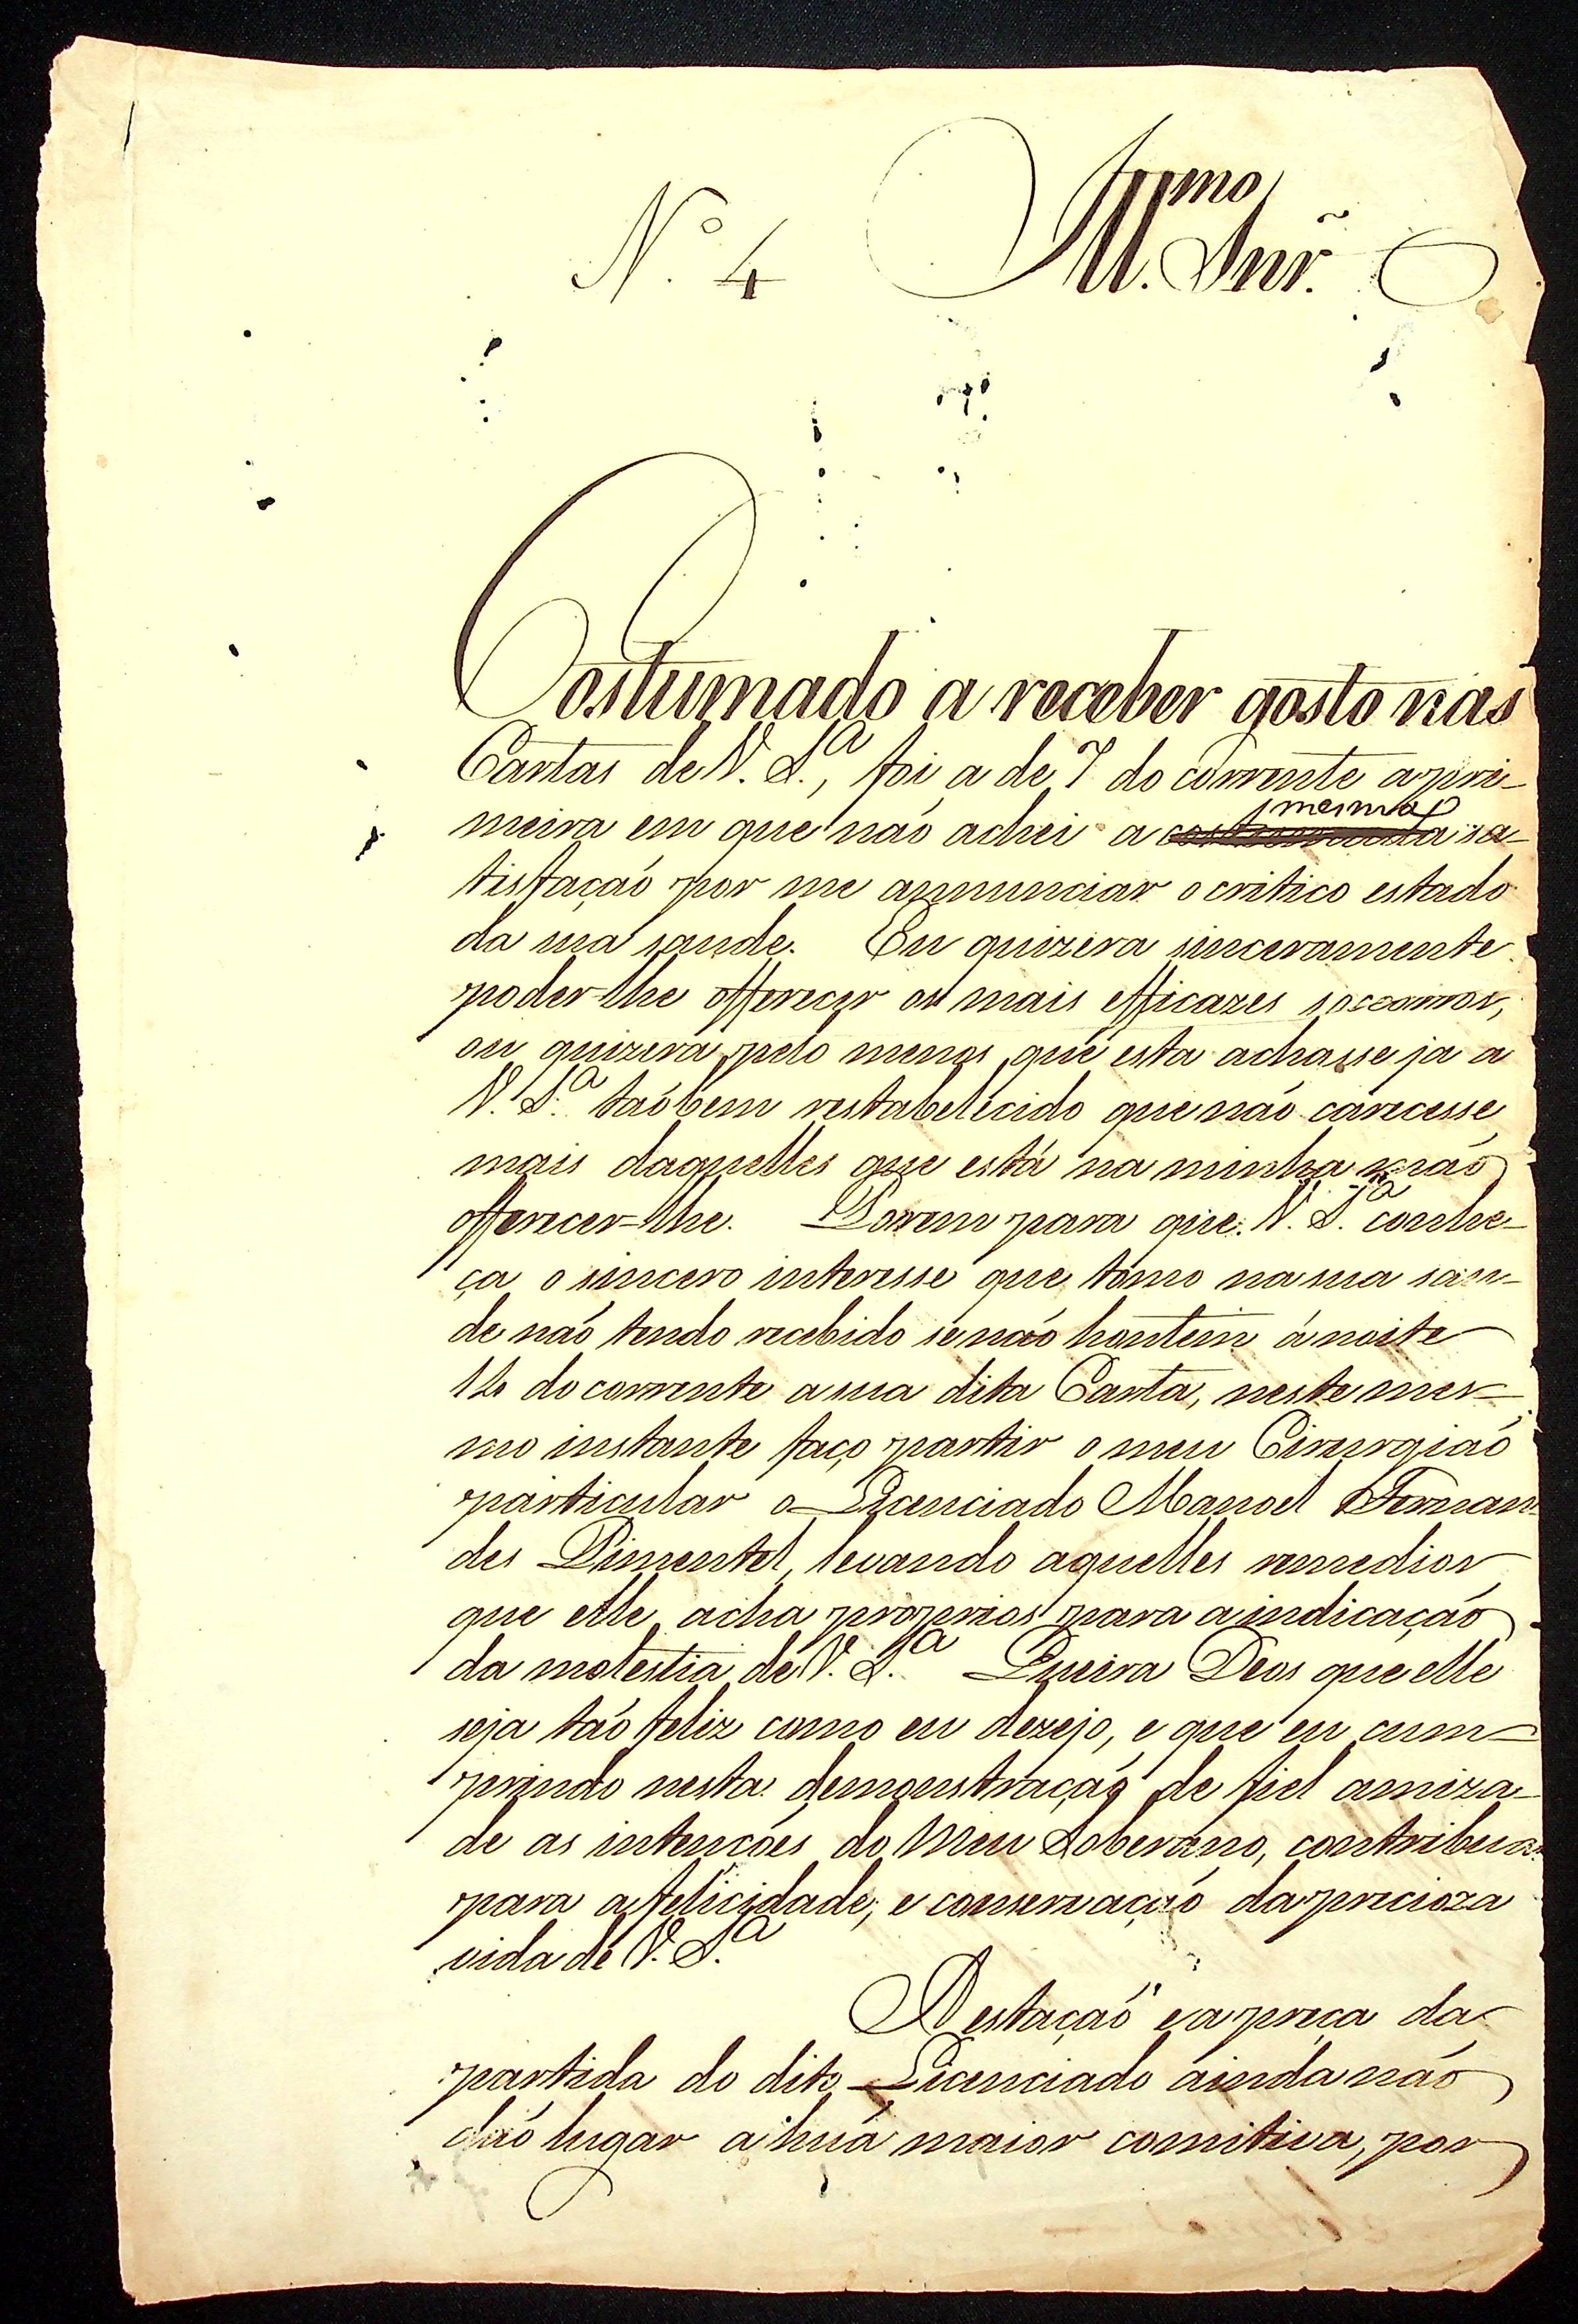 N.º 4 Ill.mo Snr.
Costumado a receber gosto nas
Cartas de V. S.ª, foi a de 7 do corrente a pri-
meira em que naõ achei a mesma sa-
tisfaçaõ por me annunciar o critico estado
da sua saude. Eu quizera sinceramente
poder-lhe offerecer os mais efficazes soccorros,
ou quizera pelo menos que esta achasse ja a
V. S.ª taõ bem restabelecido que naõ carecesse
mais daquelles que está na minha maõ
offerecer-lhe. Porem para que V. S.ª conhe-
ça o sincero interesse que tomo na sua sau-
de naõ tendo recebido senaõ hontem á noite
14 do corrente a sua dita Carta, neste mes-
mo instante faço partir o meu Cirurgiaõ
particular o Licenciado Manoel Fernan-
des Pimentel, levando aquelles remedios
que elle acha proprios para a indicaçaõ
da molestia de V. S.ª Queira Deos que elle
seja taõ feliz como eu dezejo, e que eu cum-
prindo nesta demonstraçaõ de fiel amiza-
de as intenções do Meu Soberano, contribua
para a felicidade, e conservaçaõ da precioza
vida de V. S.ª
A estaçaõ e a preça da
partida do dito Licenciado ainda naõ
daõ lugar a huã maior comitiva, por